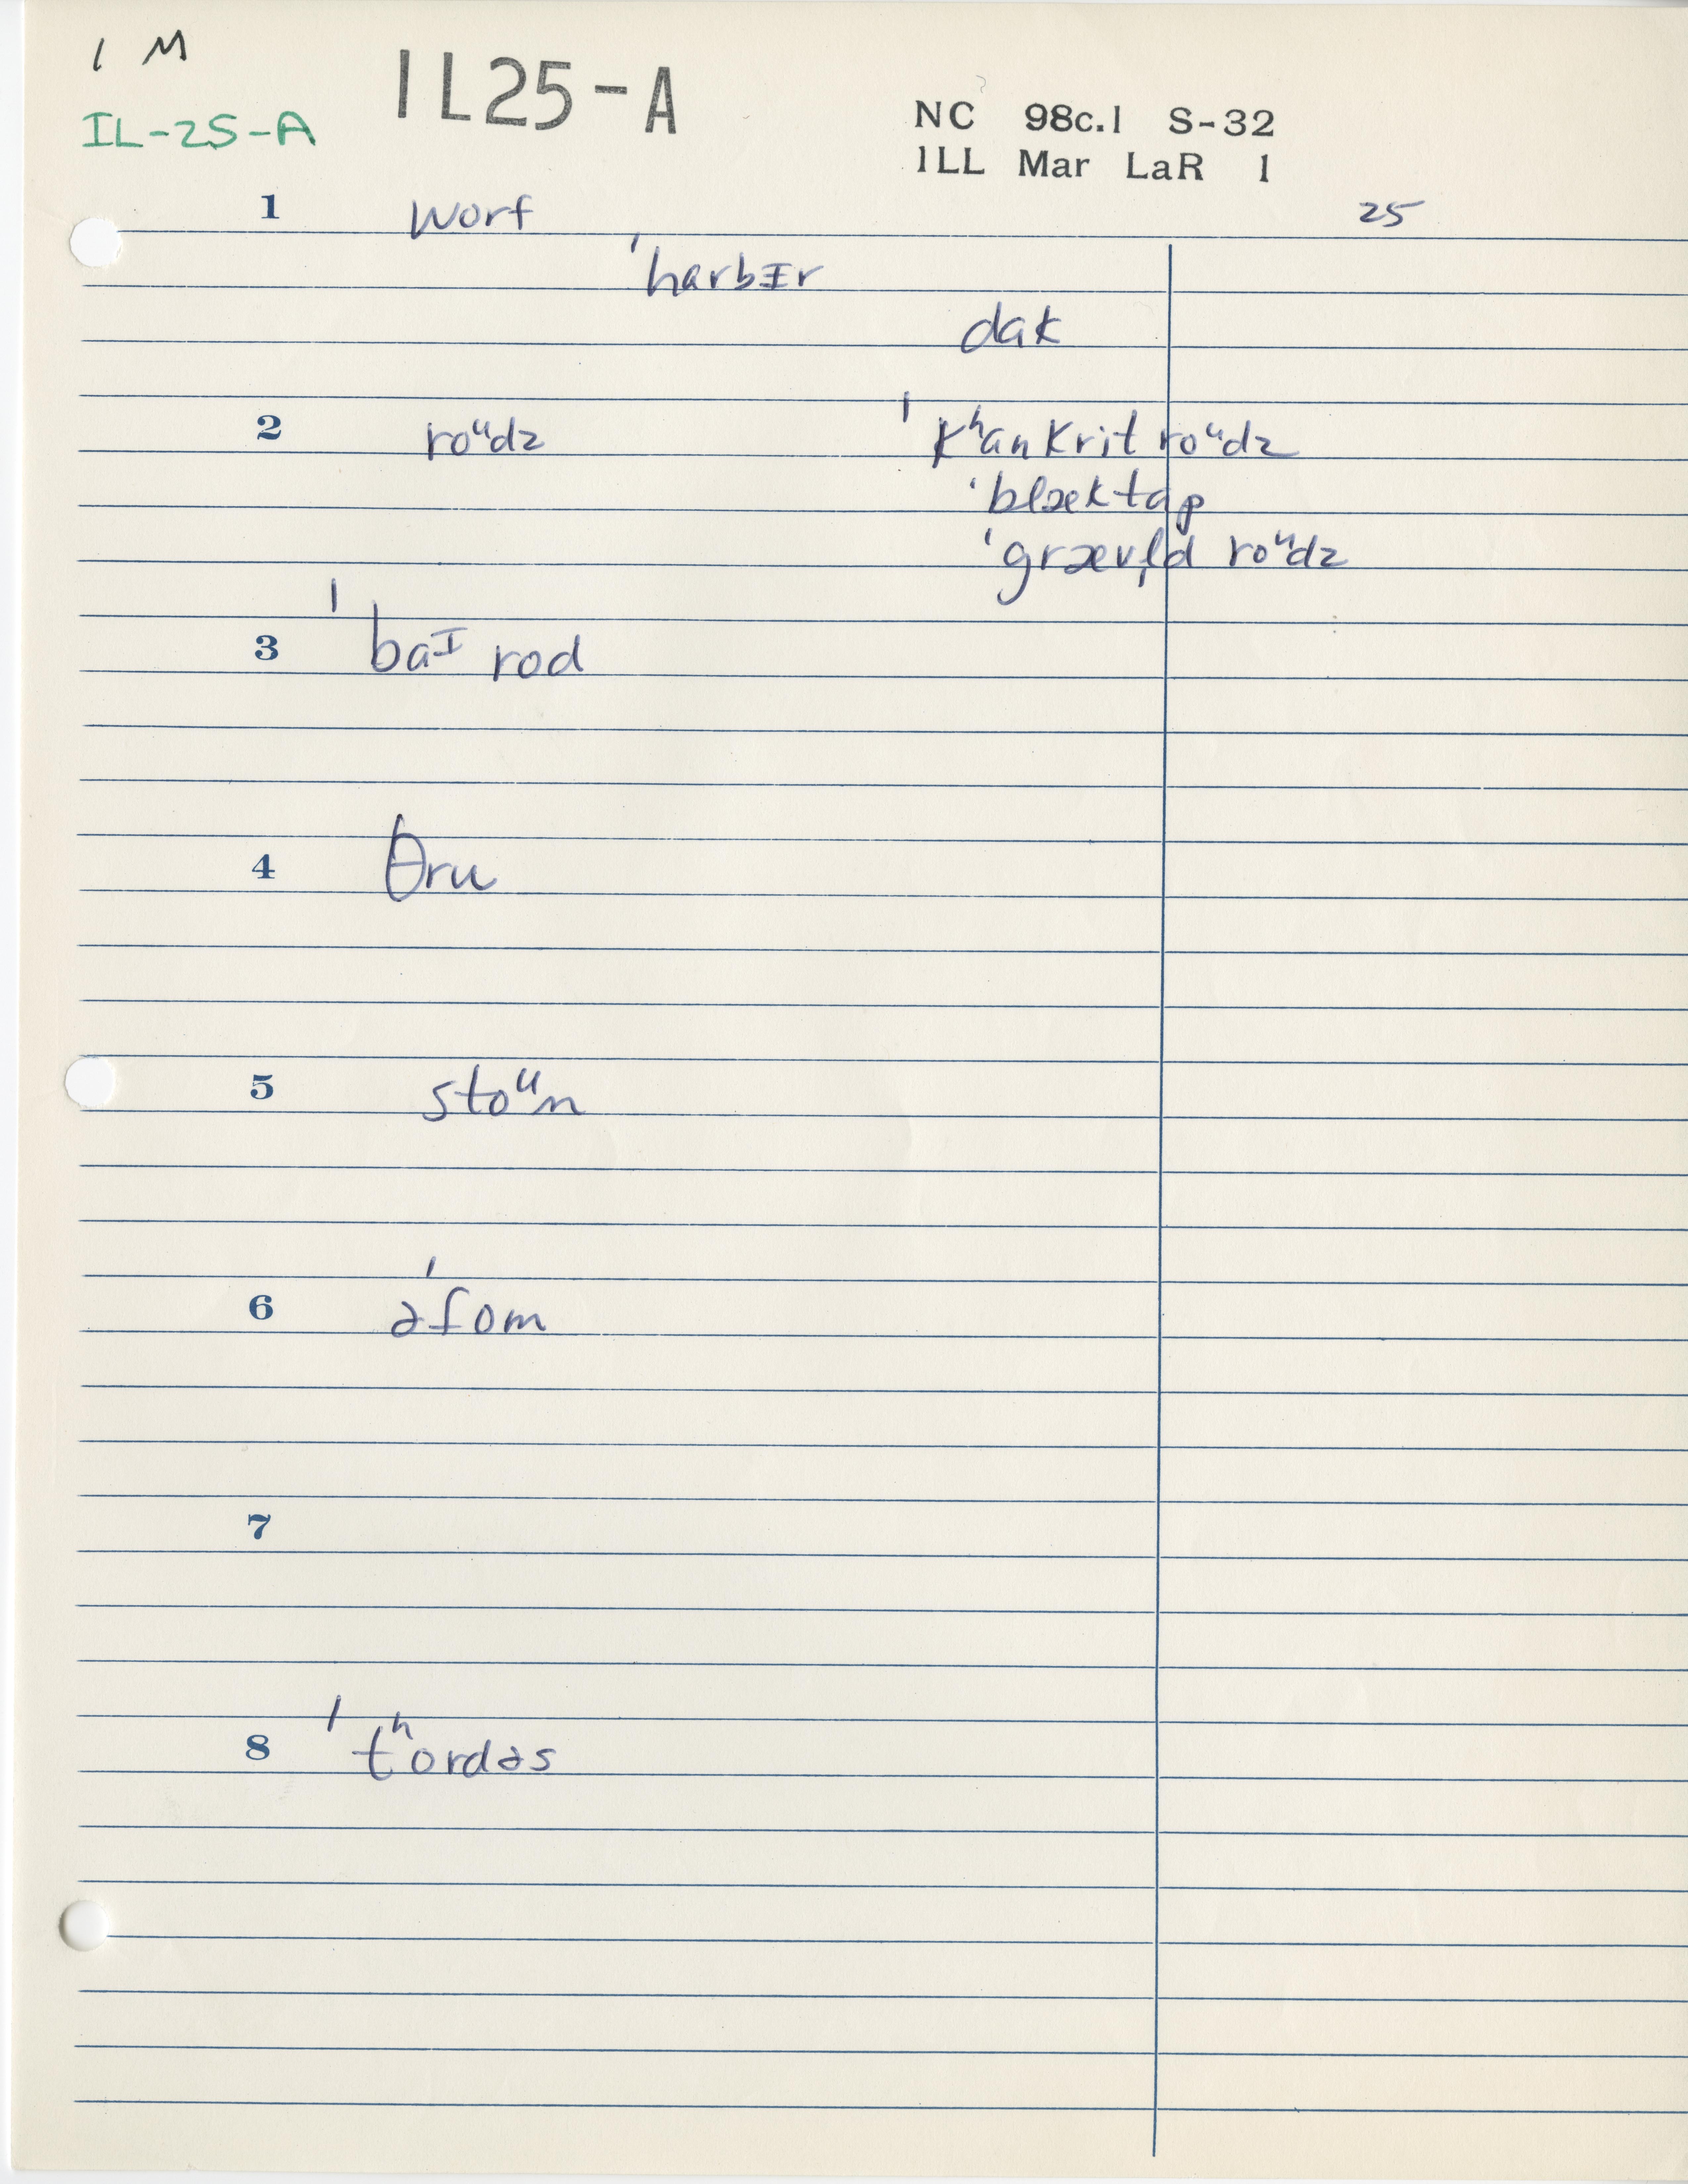 1 M
IL25-A
IL-25-A
NC 98c.1 S-32
ILL Mar LaR 1
1 worf 25
ˈharbɪr
dak
2 roᵘdz ˈkʰankrit roᵘdz
ˈblæktap
ˈgrævl̩d roᵘdz
3 ˈbaᴵ rod
4 θru
5 stoᵘn
6 əˈfom
7
8 ˈtʰordəs